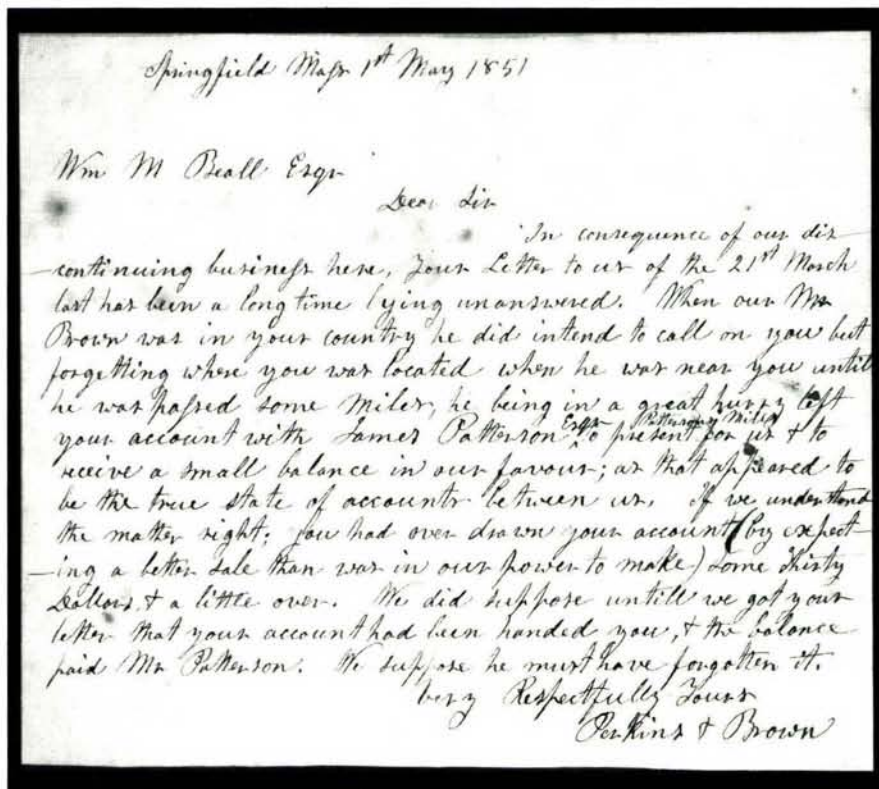 Springfield Mass 1st May 1851
Wm M Beall Esqr
Dear Sir
In consequence of our dis-
-continuing business here, Your Letter to us of the 21st March
last has been a long time lying unanswered. When our Mr
Brown was in your country he did intend to call on you but
forgetting where you was located when he was near you until
he was passed some miles, he being in a great hurry left
your account with James Patterson Esqr Pattersons Mills to present for us & to
receive a small balance in our favour; as that appeared to
be the true state of accounts between us. If we understand
the matter right; you had over drawn your account (by expect-
-ing a better sale than was in our power to make) some Thirty
Dollars, & a little over. We did suppose untill we got your
letter that your account had been handed you, & the balance
paid Mr Patterson. We suppose he must have forgotten it.
Very Respectfully Yours
Perkins & Brown